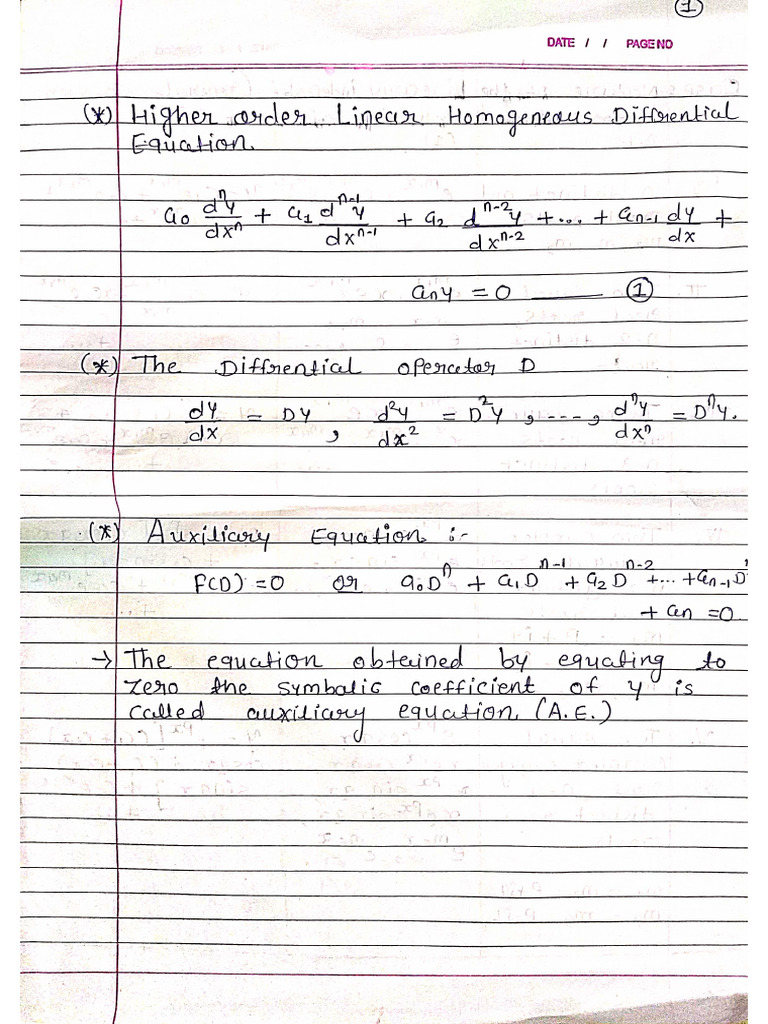 ①
DATE / / PAGE NO
(*) Higher order Linear Homogeneous Diffrential
Equation.
a₀ dⁿy/dxⁿ + a₁ dⁿ⁻¹y/dxⁿ⁻¹ + a₂ dⁿ⁻²y/dxⁿ⁻² + ... + aₙ₋₁ dy/dx +
aₙy = 0 —— ①
(*) The Diffrential operator D
dy/dx = Dy, d²y/dx² = D²y, ---, dⁿy/dxⁿ = Dⁿy.
(*) Auxiliary Equation :-
F(D) = 0 or a₀Dⁿ + a₁Dⁿ⁻¹ + a₂Dⁿ⁻² +... + aₙ₋₁D
+ aₙ = 0.
→ The equation obtained by equating to
zero the symbolic coefficient of y is
called auxiliary equation. (A.E.)